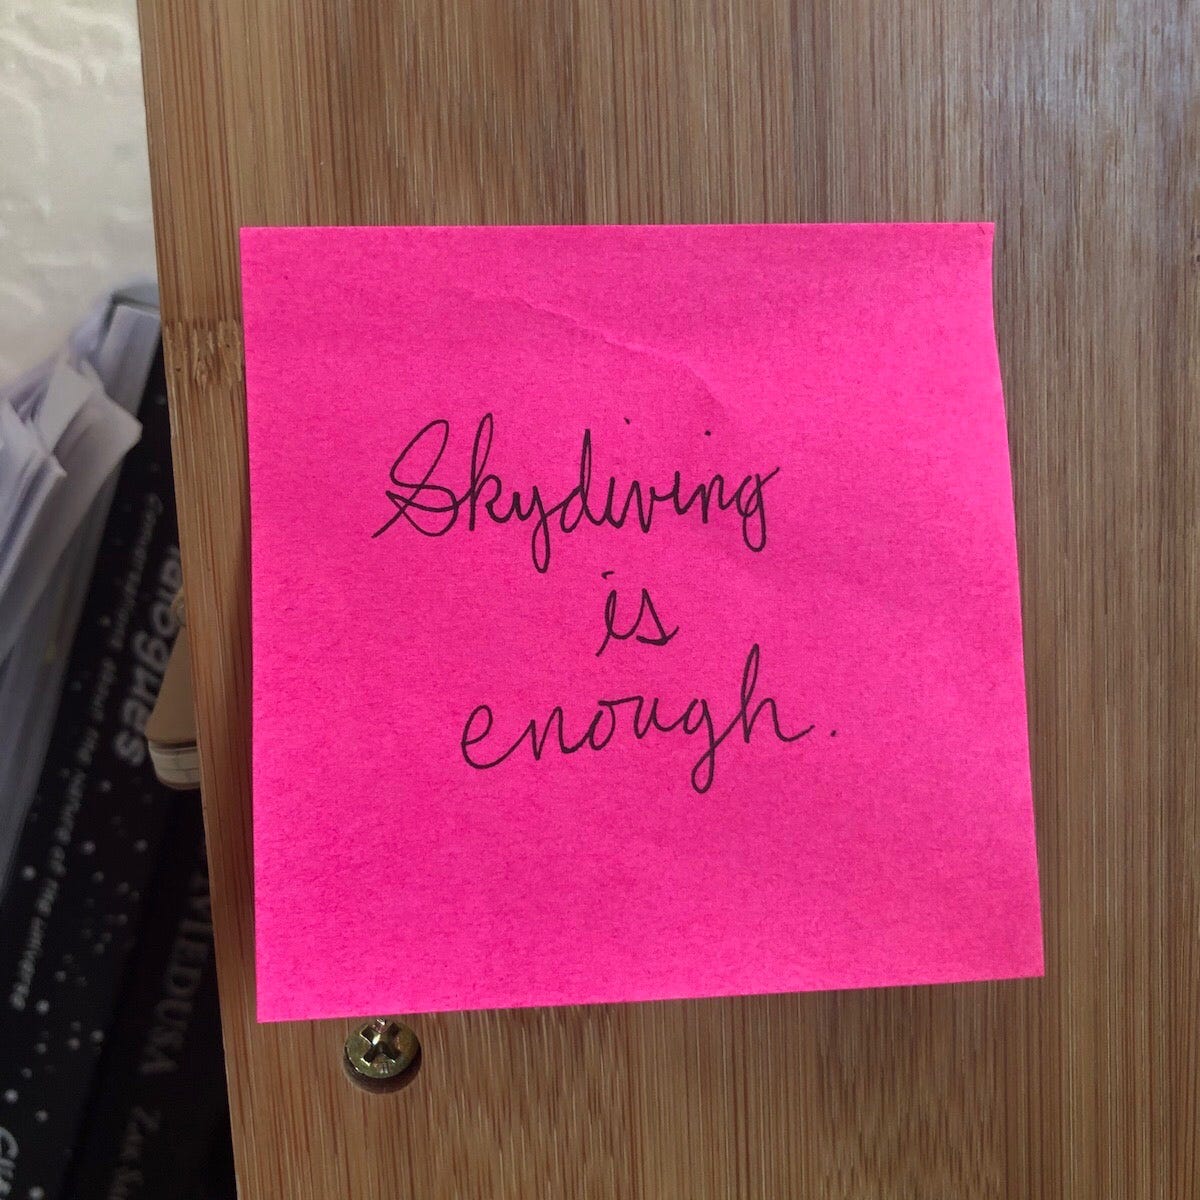 Skydiving
is
enough.
Conversations about the nature of the universe
MEDUSA